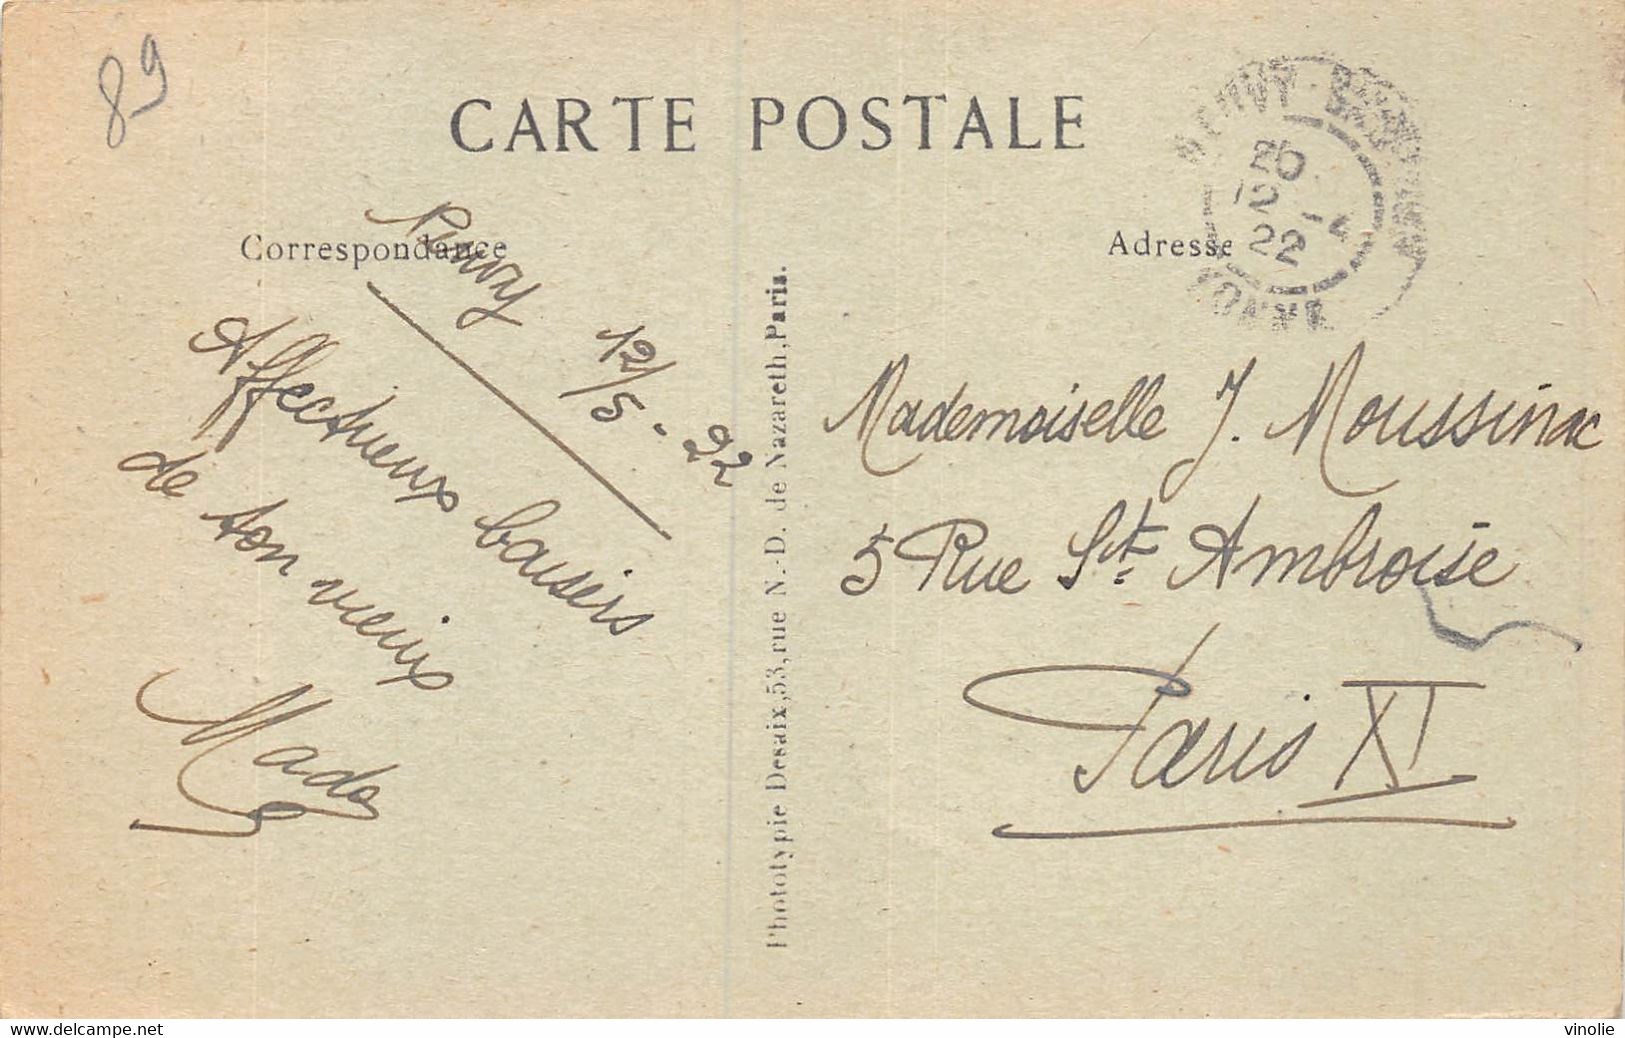 89
CARTE POSTALE
Correspondance
Adresse
20
12 - 5
22
YONNE
12/5 - 22
Affectueux baisers
de ton vieux
Mado
Phototypie Desaix, 53, rue N.-D. de Nazareth, Paris.
Mademoiselle J. Moussinac
5 Rue St. Ambroise
Paris XI
www.delcampe.net
vinolie